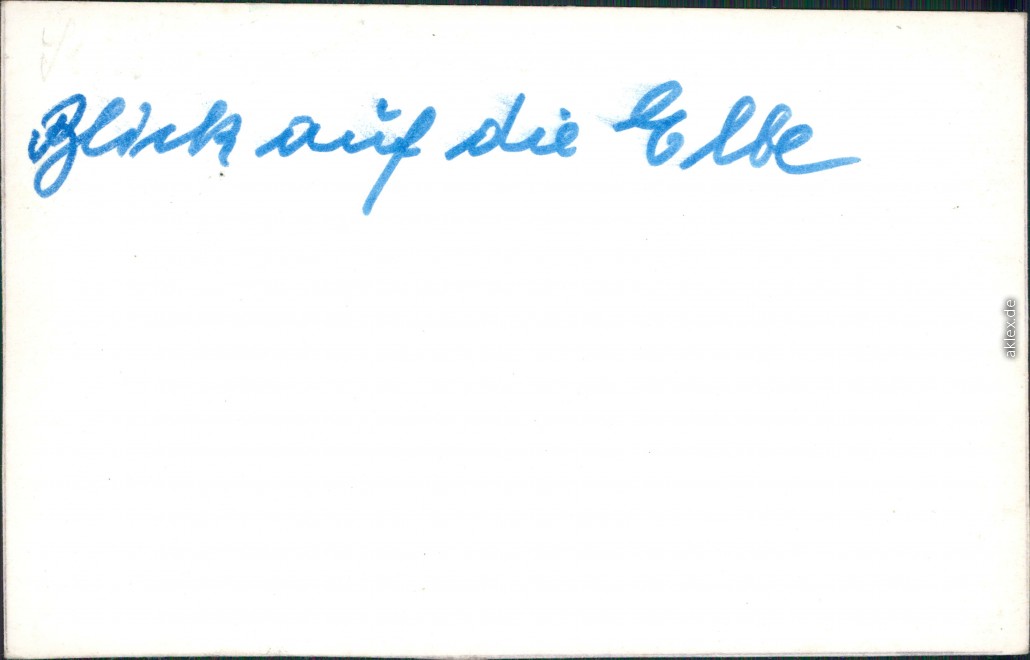 Blick auf die Elbe
aklex.de